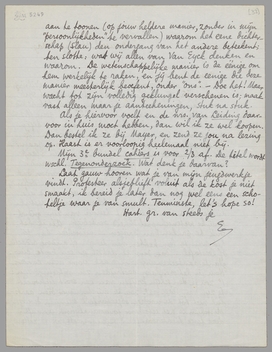 aan te toonen (op jouw heldere manier, zonder in mijn
"persoonlijkheden" te vervallen) waarom het eene dichter-
schap (Slau) den ondergang van het andere beteekent;
ten slotte, wat wij allen van Van Eyck denken, en
waarom. De wetenschappelijke manier is de eenige om
hem werkelijk te raken, en jij bent de eenige die deze
manier meesterlijk hanteert, onder "ons". - Doe het! Maar,
wacht tot zijn volledig geslijmd verschenen is; maak
vast alleen maar je aanteekeningen, stuk na stuk.
Als je hiervoor voelt en de
voor in huis moet hebben, dan wil ik ze wel koopen.
Dan bestel ik ze bij Mayer, en zend ze jou na lezing
op. Haast is er voorloopig heelemaal niet bij.
Mijn 3e bundel cahiers is voor 2/3 af. De titel wordt
wschl. Tegenonderzoek. Wat denk je daarvan?
Laat gauw hooren wat je van mijn
vindt. Protesteer alsjeblieft voluit als de kost je niet
smaakt, ik bereid je later dan nog wel eens een scho-
teltje waar je van smult. Tenminste, let's hope so!
Hart. gr. van steeds je
E